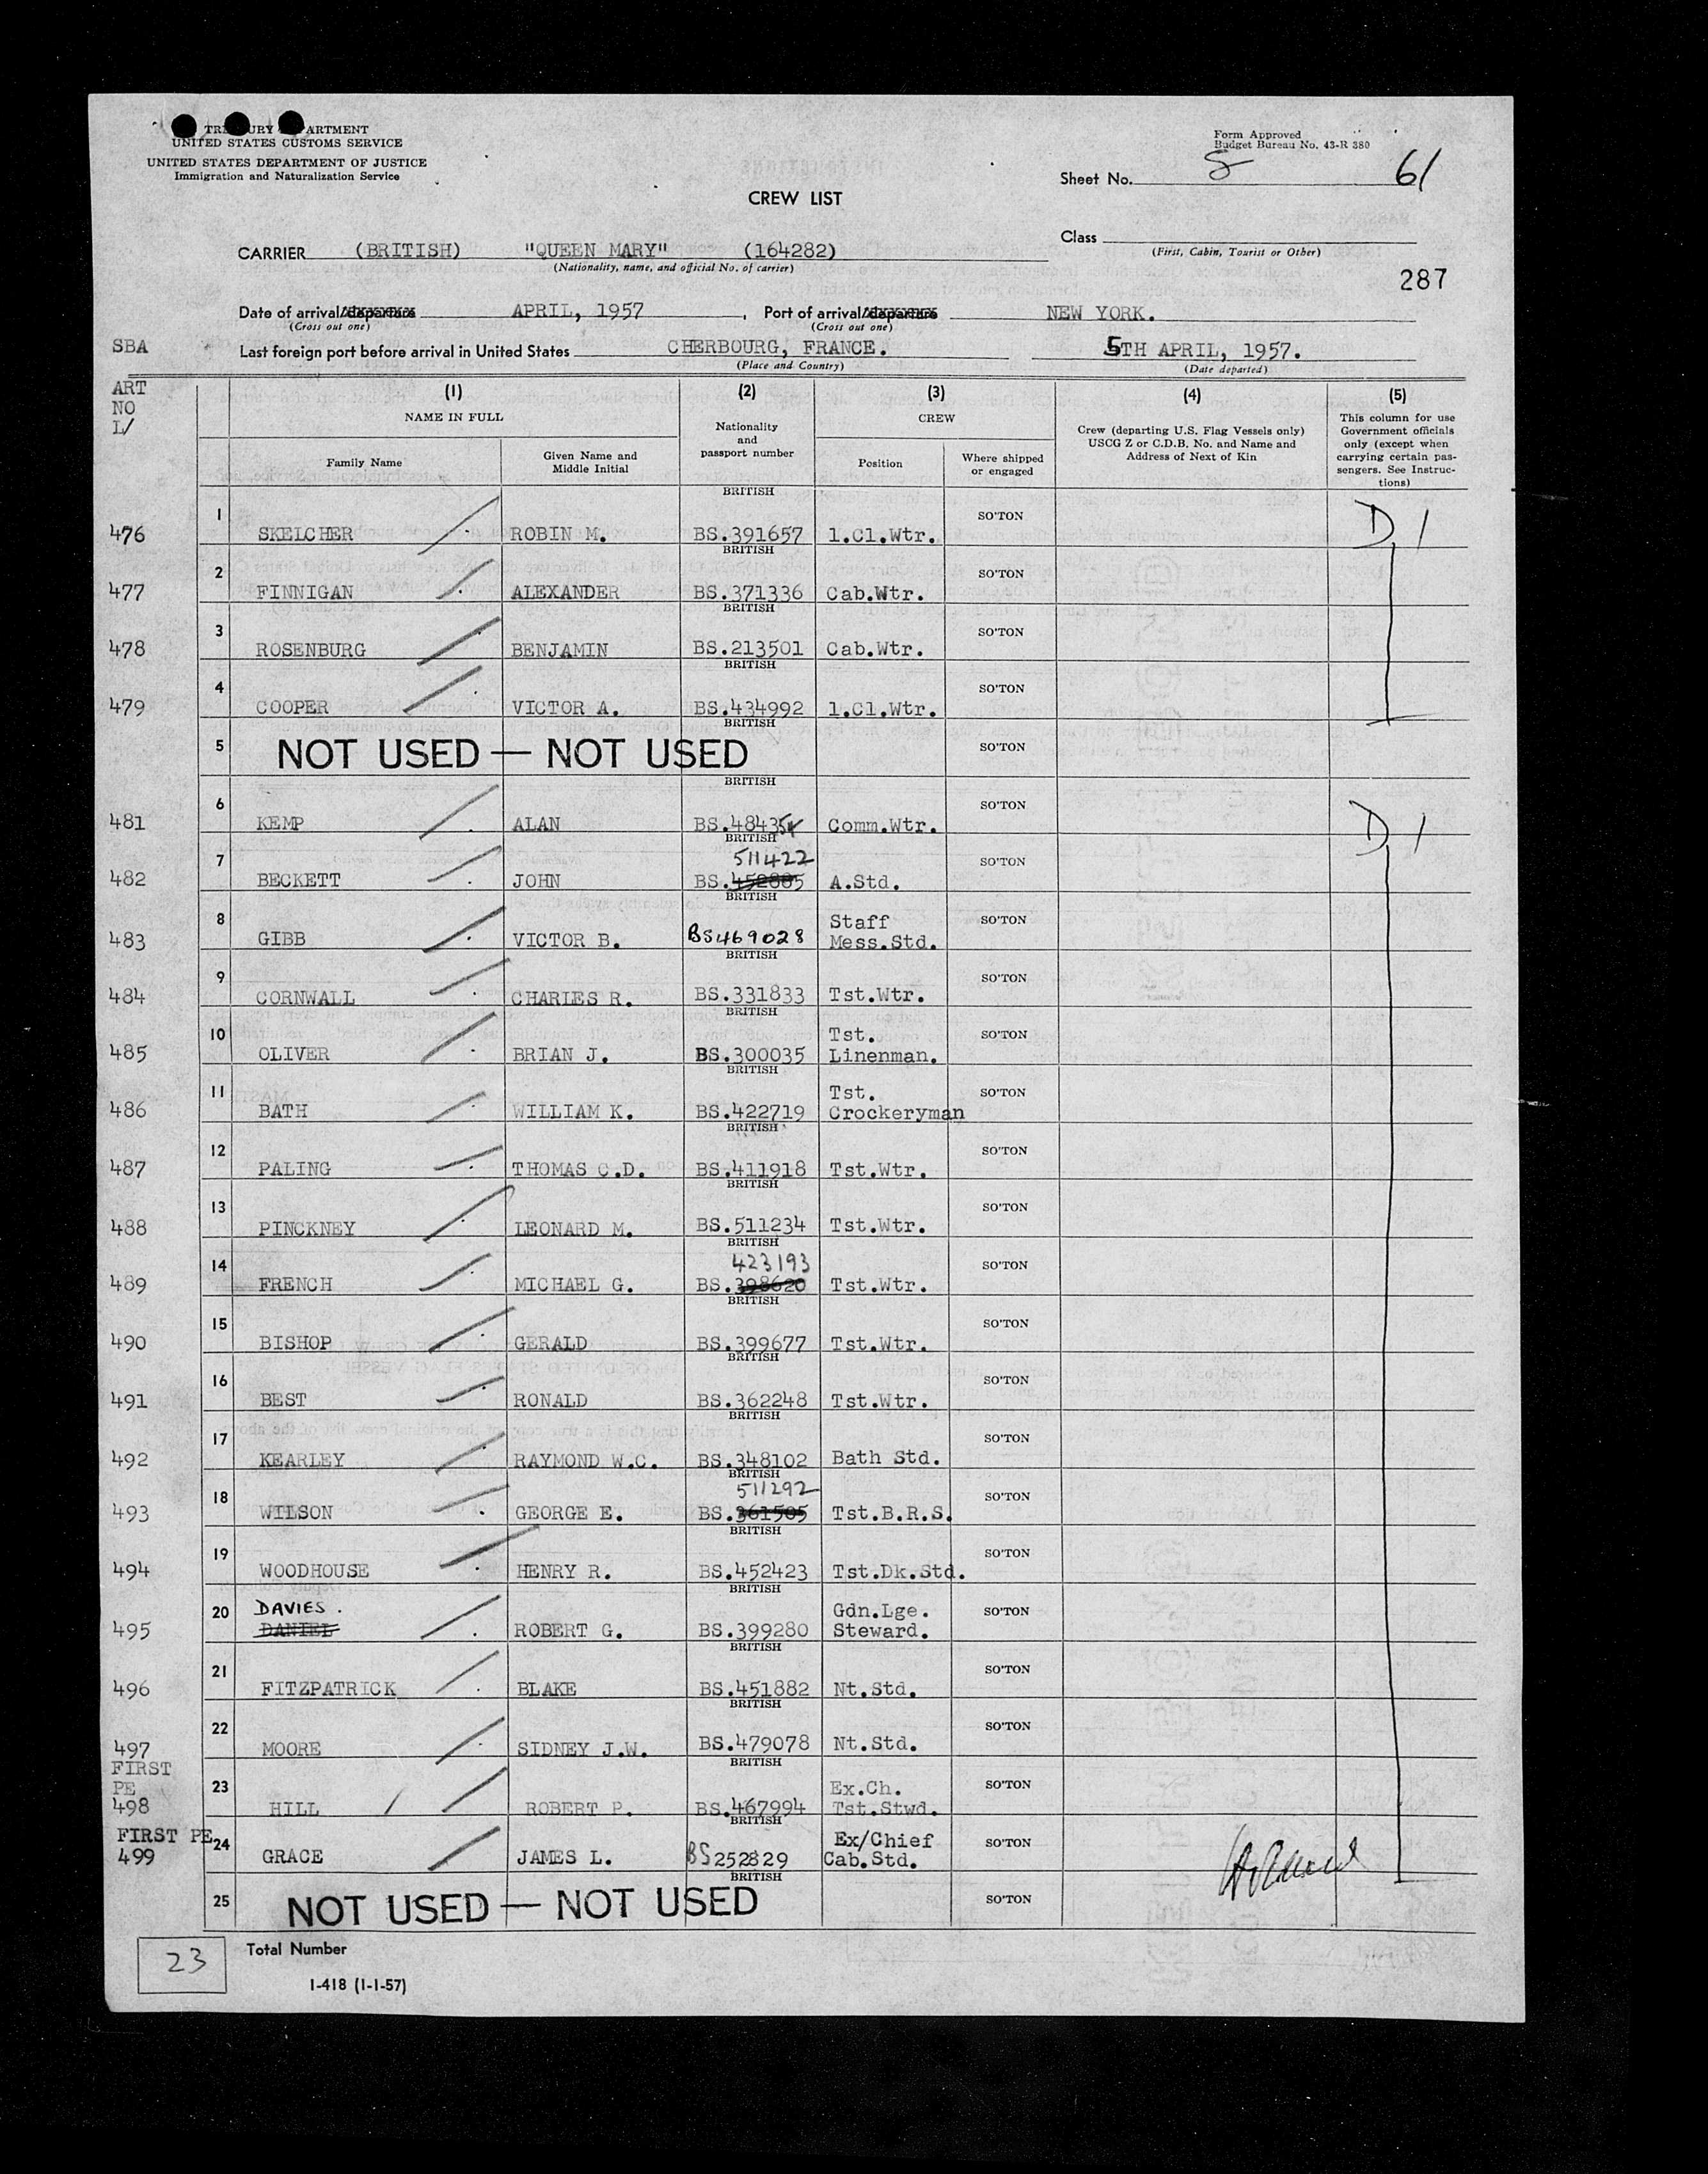 TREASURY DEPARTMENT
UNITED STATES CUSTOMS SERVICE
UNITED STATES DEPARTMENT OF JUSTICE
Immigration and Naturalization Service
Form Approved
Budget Bureau No. 43-R 380
Sheet No. 61
CREW LIST
Class
(First, Cabin, Tourist or Other)
CARRIER (BRITISH) "QUEEN MARY" (164282)
(Nationality, name, and official No. of carrier)
287
Date of arrival/departure APRIL, 1957, Port of arrival/departure NEW YORK.
(Cross out one) (Cross out one)
SBA Last foreign port before arrival in United States CHERBOURG, FRANCE. 5TH APRIL, 1957.
(Place and Country) (Date departed)
ART NO L/
(1) (2) (3) (4) (5)
NAME IN FULL
Family Name
Given Name and Middle Initial
Nationality and passport number
CREW
Position
Where shipped or engaged
Crew (departing U.S. Flag Vessels only) USCG Z or C.D.B. No. and Name and Address of Next of Kin
This column for use Government officials only (except when carrying certain passengers. See Instructions)
476 1 SKELCHER ROBIN M. BRITISH BS.391657 1.Cl.Wtr. SO'TON D 1
477 2 FINNIGAN ALEXANDER BRITISH BS.371336 Cab.Wtr. SO'TON
478 3 ROSENBURG BENJAMIN BRITISH BS.213501 Cab.Wtr. SO'TON
479 4 COOPER VICTOR A. BRITISH BS.434992 1.Cl.Wtr. SO'TON
5 NOT USED — NOT USED BRITISH SO'TON
481 6 KEMP ALAN BRITISH BS.48435 Comm.Wtr. SO'TON D 1
482 7 BECKETT JOHN BRITISH 511422 BS.452885 A.Std. SO'TON
483 8 GIBB VICTOR B. BRITISH BS469028 Staff Mess.Std. SO'TON
484 9 CORNWALL CHARLES R. BRITISH BS.331833 Tst.Wtr. SO'TON
485 10 OLIVER BRIAN J. BRITISH BS.300035 Tst. Linenman. SO'TON
486 11 BATH WILLIAM K. BRITISH BS.422719 Tst. Crockeryman SO'TON
487 12 PALING THOMAS C.D. BRITISH BS.411918 Tst.Wtr. SO'TON
488 13 PINCKNEY LEONARD M. BRITISH BS.511234 Tst.Wtr. SO'TON
489 14 FRENCH MICHAEL G. BRITISH 423193 BS.398620 Tst.Wtr. SO'TON
490 15 BISHOP GERALD BRITISH BS.399677 Tst.Wtr. SO'TON
491 16 BEST RONALD BRITISH BS.362248 Tst.Wtr. SO'TON
492 17 KEARLEY RAYMOND W.C. BRITISH BS.348102 Bath Std. SO'TON
493 18 WILSON GEORGE E. BRITISH 511292 BS.361505 Tst.B.R.S. SO'TON
494 19 WOODHOUSE HENRY R. BRITISH BS.452423 Tst.Dk.Std. SO'TON
495 20 DAVIES. DANIEL ROBERT G. BRITISH BS.399280 Gdn.Lge. Steward. SO'TON
496 21 FITZPATRICK BLAKE BRITISH BS.451882 Nt.Std. SO'TON
497 22 MOORE SIDNEY J.W. BRITISH BS.479078 Nt.Std. SO'TON
FIRST PE 498 23 HILL ROBERT P. BRITISH BS.467994 Ex.Ch. Tst.Stwd. SO'TON
FIRST PE 499 24 GRACE JAMES L. BRITISH BS252829 Ex/Chief Cab.Std. SO'TON
25 NOT USED — NOT USED BRITISH SO'TON
23 Total Number
I-418 (1-1-57)